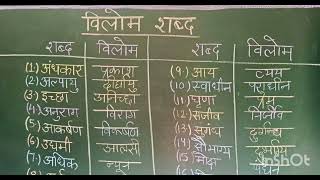 विलोम शब्द
शब्द विलोम शब्द विलोम
(1.) अंधकार प्रकाश (9.) आय व्यय
(2.) अल्पायु दीर्घायु (10.) स्वाधीन पराधीन
(3.) इच्छा अनिच्छा (11.) घृणा प्रेम
(4.) अनुराग विराग (12.) सजीव निर्जीव
(5.) आकर्षण विकर्षण (13.) सुगंध दुर्गन्ध
(6.) उद्यमी आलसी (14.) सौभाग्य दुर्भाग्य
(7.) अधिक न्यून (15.)